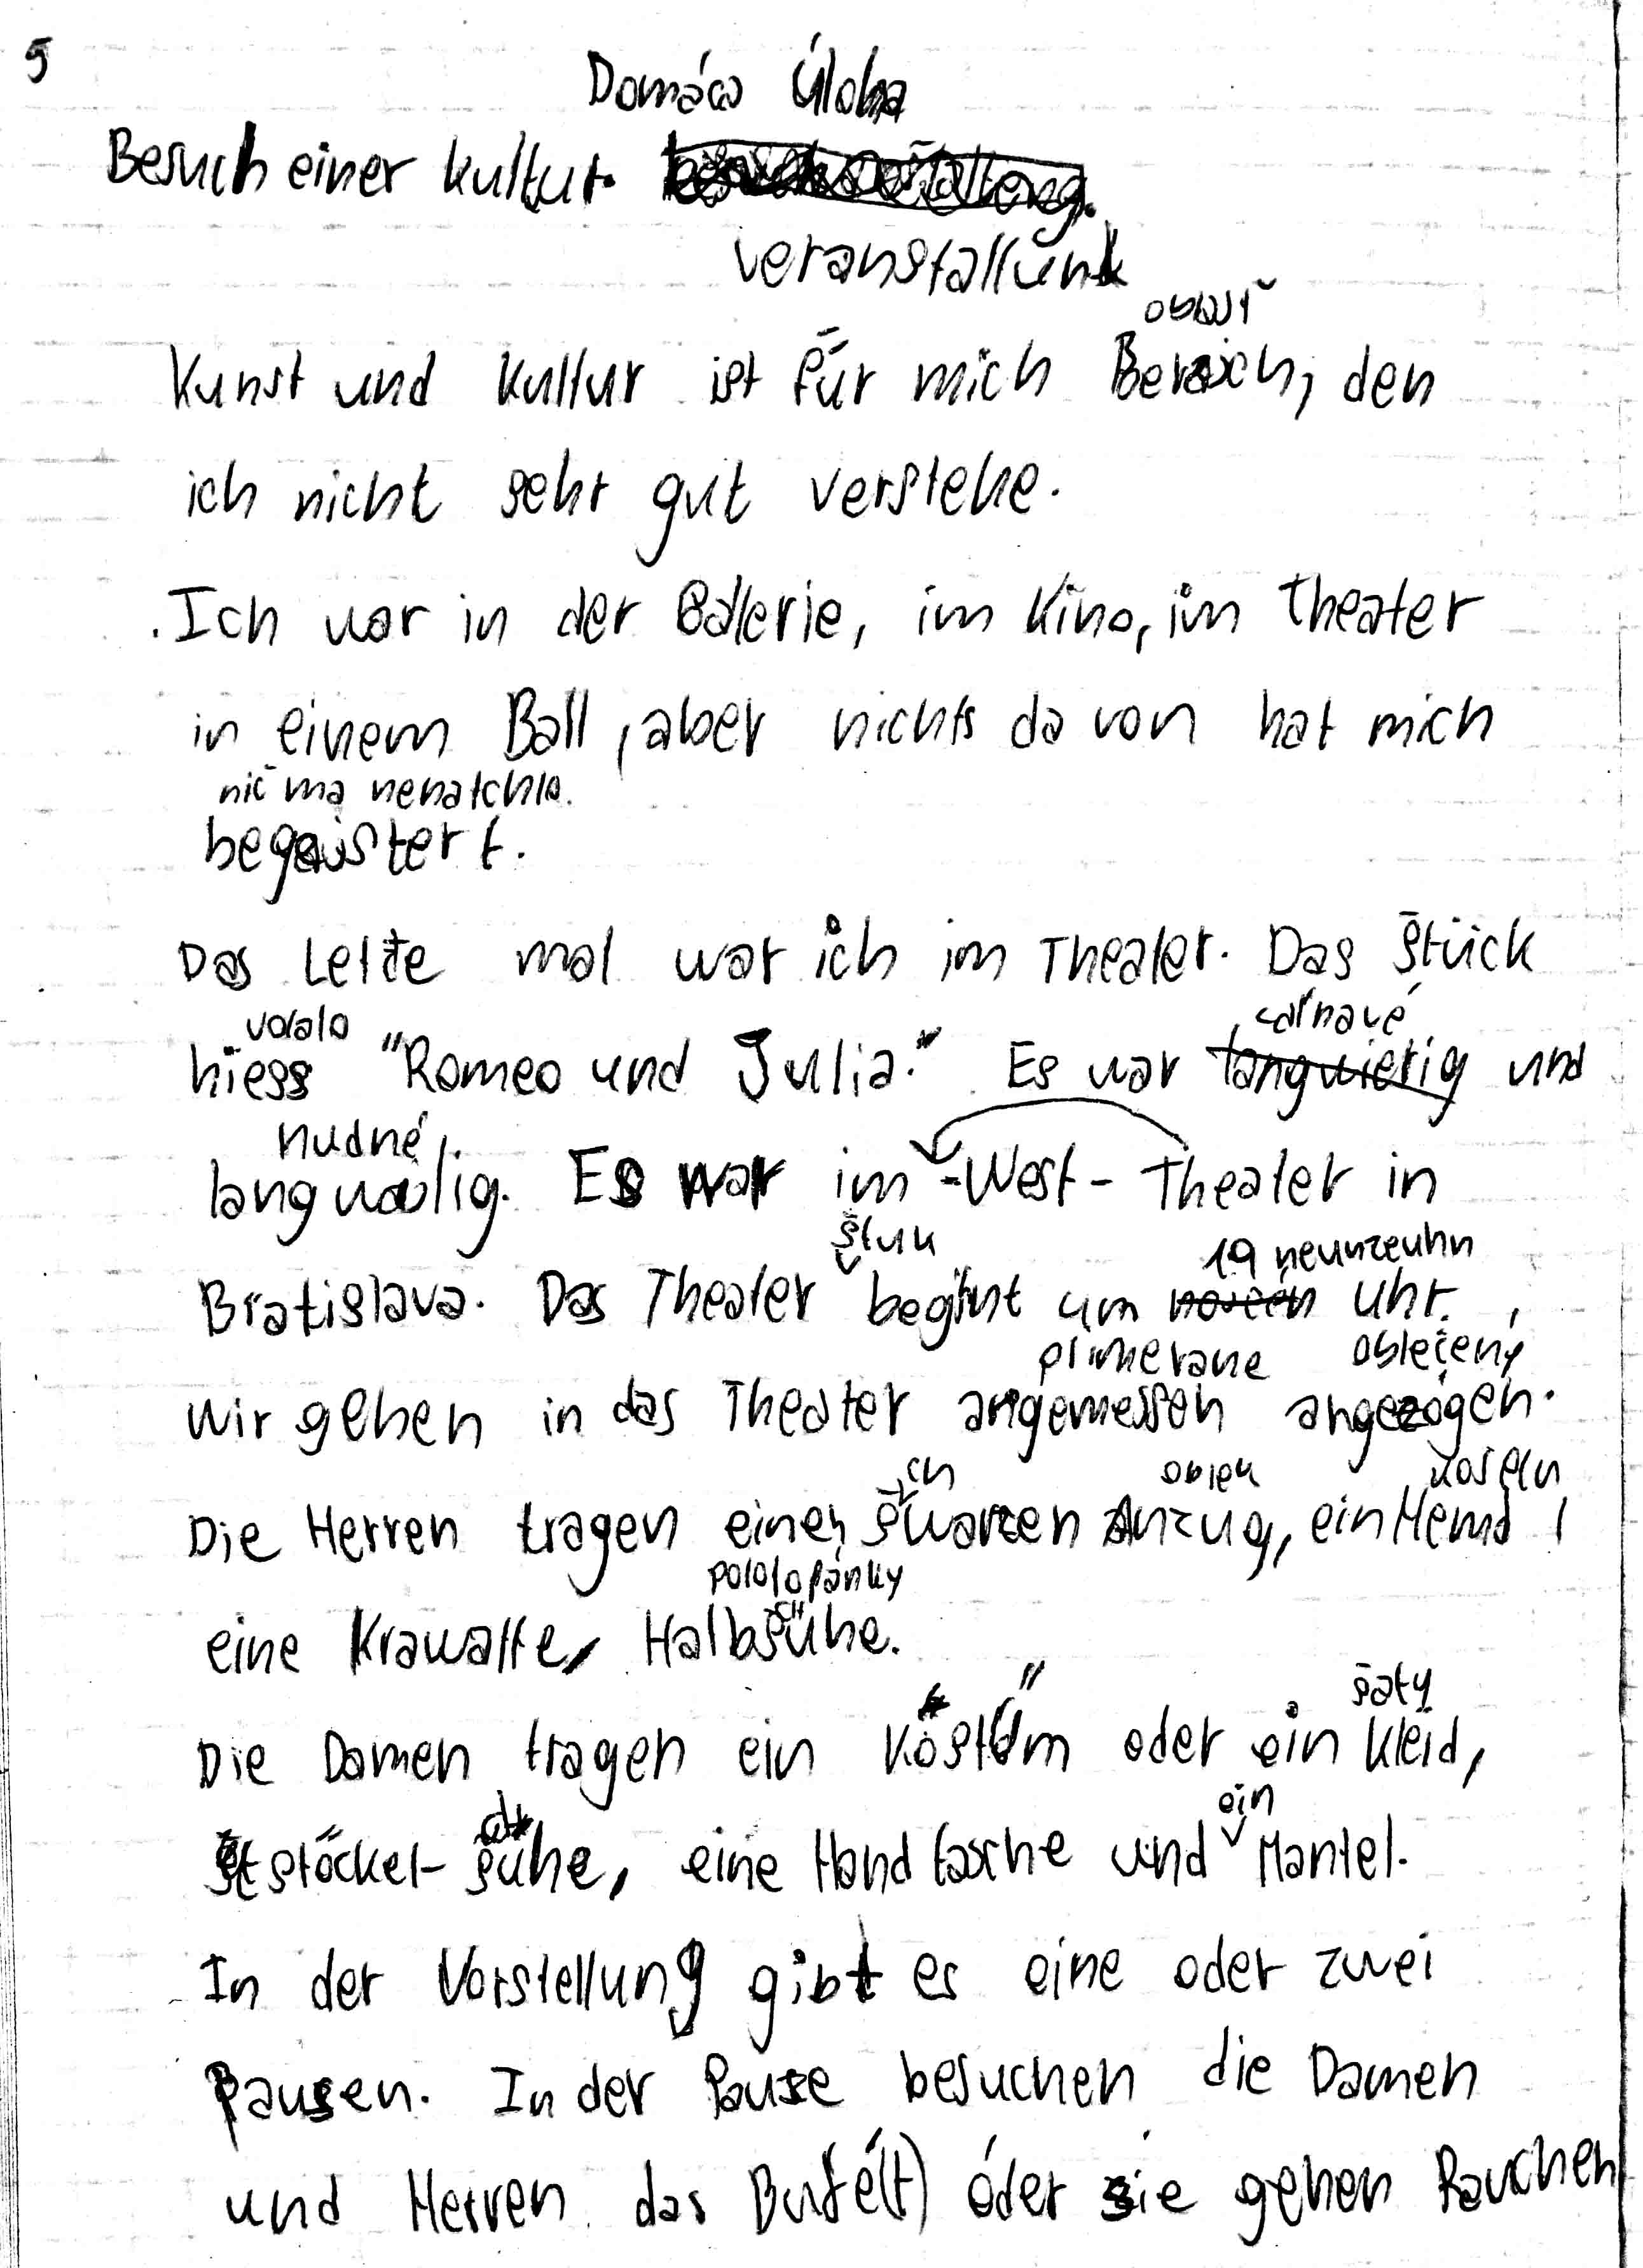 5
Domáca Úloha
Besuch einer kultur.
veranstaltunk
oblasť
Kunst und Kultur ist für mich Bereich, den
ich nicht sehr gut verstehe.
Ich war in der Galerie, im Kino, im Theater
in einem Ball, aber nichts da von hat mich
nič ma nenatchlo.
begeistert.
Das Lelte mal war ich im Theater. Das Stück
volalo
zdĺhavé
hiess "Romeo und Julia." Es war langwierig und
nudné
langwalig. Es war im -West- Theater in
štuk
19 neunzeuhn
Bratislava. Das Theater begint um Uhr.
primerane oblečený
Wir gehen in das Theater angemessen angezogen.
ch oblek košeľu
Die Herren tragen einen swarzen Anzug, ein Hemd,
pololopánky
ch
eine Krawatte, Halbsuhe.
šaty
Die Damen tragen ein Köstüm oder ein Kleid,
ch
ein
stöckel-suhe, eine Handtasche und Mantel.
In der Vorstellung gibt es eine oder zwei
Pausen. In der Pause besuchen die Damen
und Herren das Bufét) óder sie gehen Rauchen